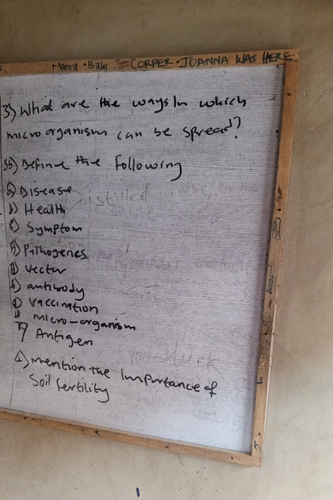 CORPER • JOANNA WAS HERE
3) What are the ways in which
micro organism can be spread?
3b) Define the following
a) Disease
b) Health
c) Symptom
d) Pathogenes
e) vector
f) antibody
g) vaccination
h) micro-organism
i) Antigen
4) mention the importance of
Soil fertility